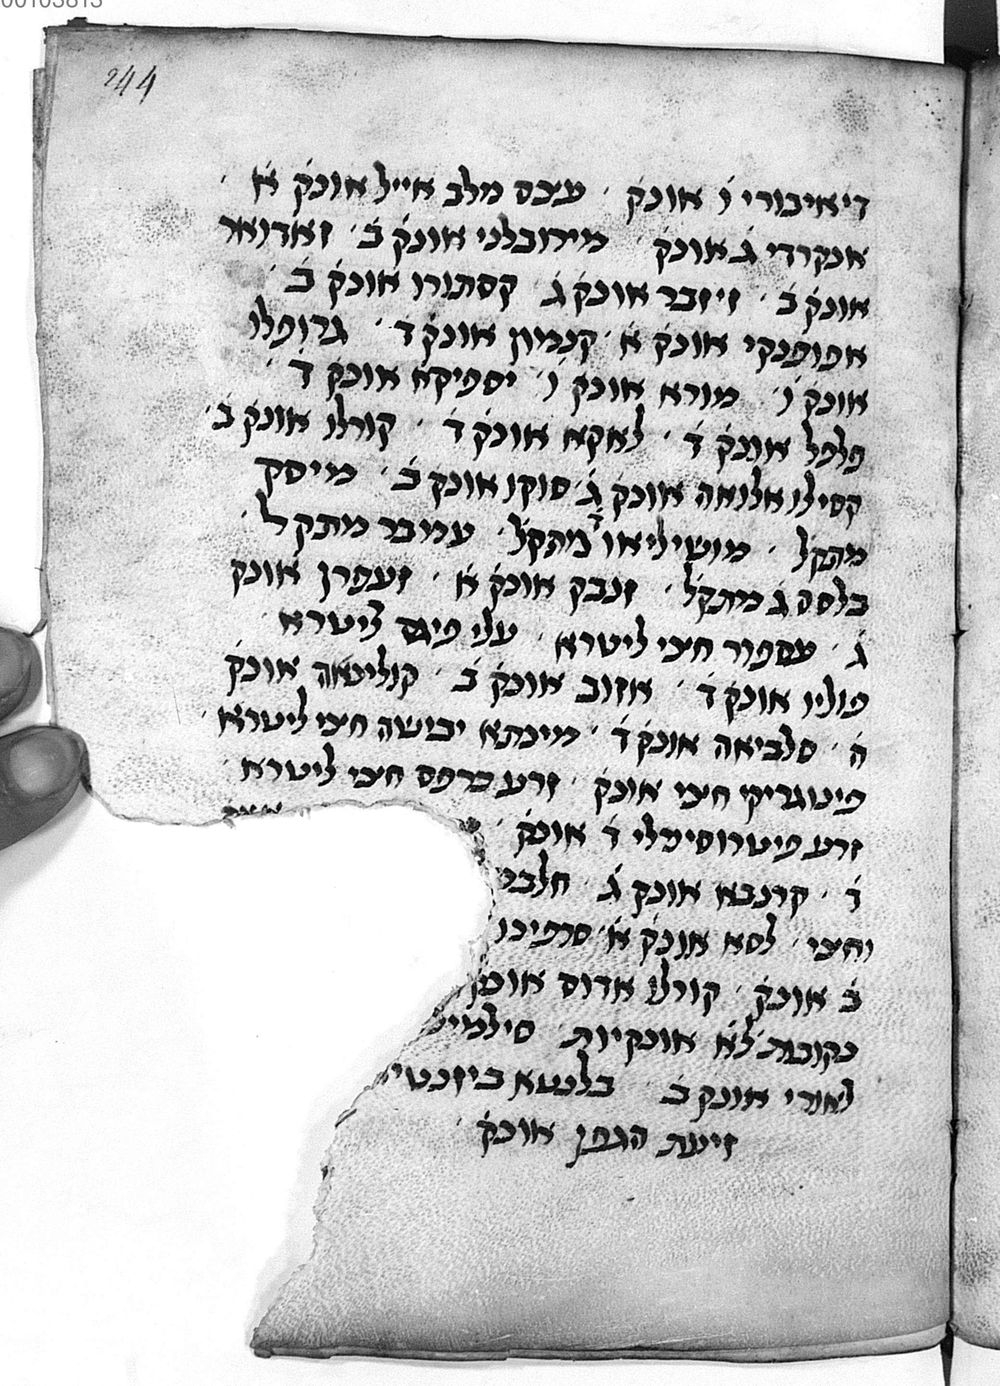 00103813
244
דיאיבורי ו׳ אונק׳ · עצם מלב אייל אונק׳ א׳ ·
אנקרדי ג׳ אונק׳ מירובלני אונק׳ ב׳ · זאדואר
אונק׳ ב׳ · זיזבר אונק׳ ג׳ קסתורו אונק׳ ב׳ ·
אפופנקי אונק׳ א׳ · קנמון אונק׳ ד׳ · גרופלו
אונק׳ ו׳ · מורא אונק׳ ו׳ · יספיקא אונק׳ ד׳ ·
פלפל אונק׳ ד׳ · לאקא אונק׳ ד׳ · קורלו אונק׳ ב׳ ·
קסילו אלואה אונק׳ ג׳ · סוקו אונק׳ ב׳ · מייסק
מתקל · מושיליאו מתקל · עמבר מתקל ·
בלסם ג׳ מתקל · זנבק אונק׳ א׳ · זעפרן אונק׳
ג׳ · עספור חצי ליטרא · עלי פיגם ליטרא ·
פוליו אונק׳ ד׳ · אזוב אונק׳ ב׳ · קוליטאה אונק׳
ה׳ · סלביאה אונק׳ ד׳ · מינתא יבושה חצי ליטרא ·
פיטגריקי חצי אונק׳ · זרע כרפס חצי ליטרא ·
זרע פיטרוסימלי ד׳ אונק׳ ·
ד׳ · קרנבא אונק׳ ג׳ · חלב
וחצי · לסא אונק׳ א׳ · סרפינו
ב׳ אונק׳ · קורלו אדום אונק
נקובות לא אונקיות · סילמי
לאורי אונק׳ ב׳ · בלנטא ביזנטי
זיעת הגפן אונק׳ ·